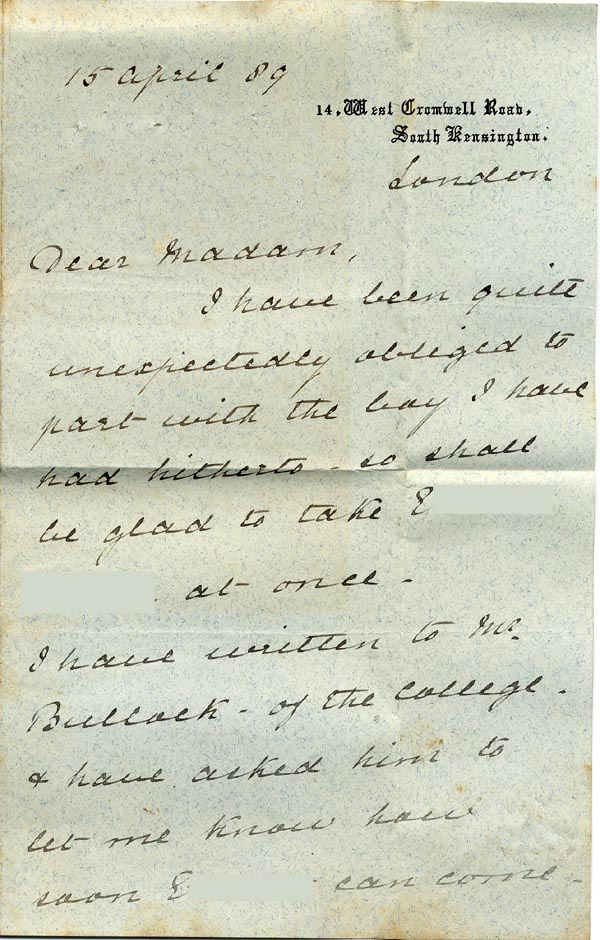 15 April 89
14, West Cromwell Road,
South Kensington.
London
Dear Madam,
I have been quite
unexpectedly obliged to
part with the boy I have
had hitherto - so shall
be glad to take E
at once -
I have written to Mr.
Bullock - of the College -
& have asked him to
let me know how
soon E can come -